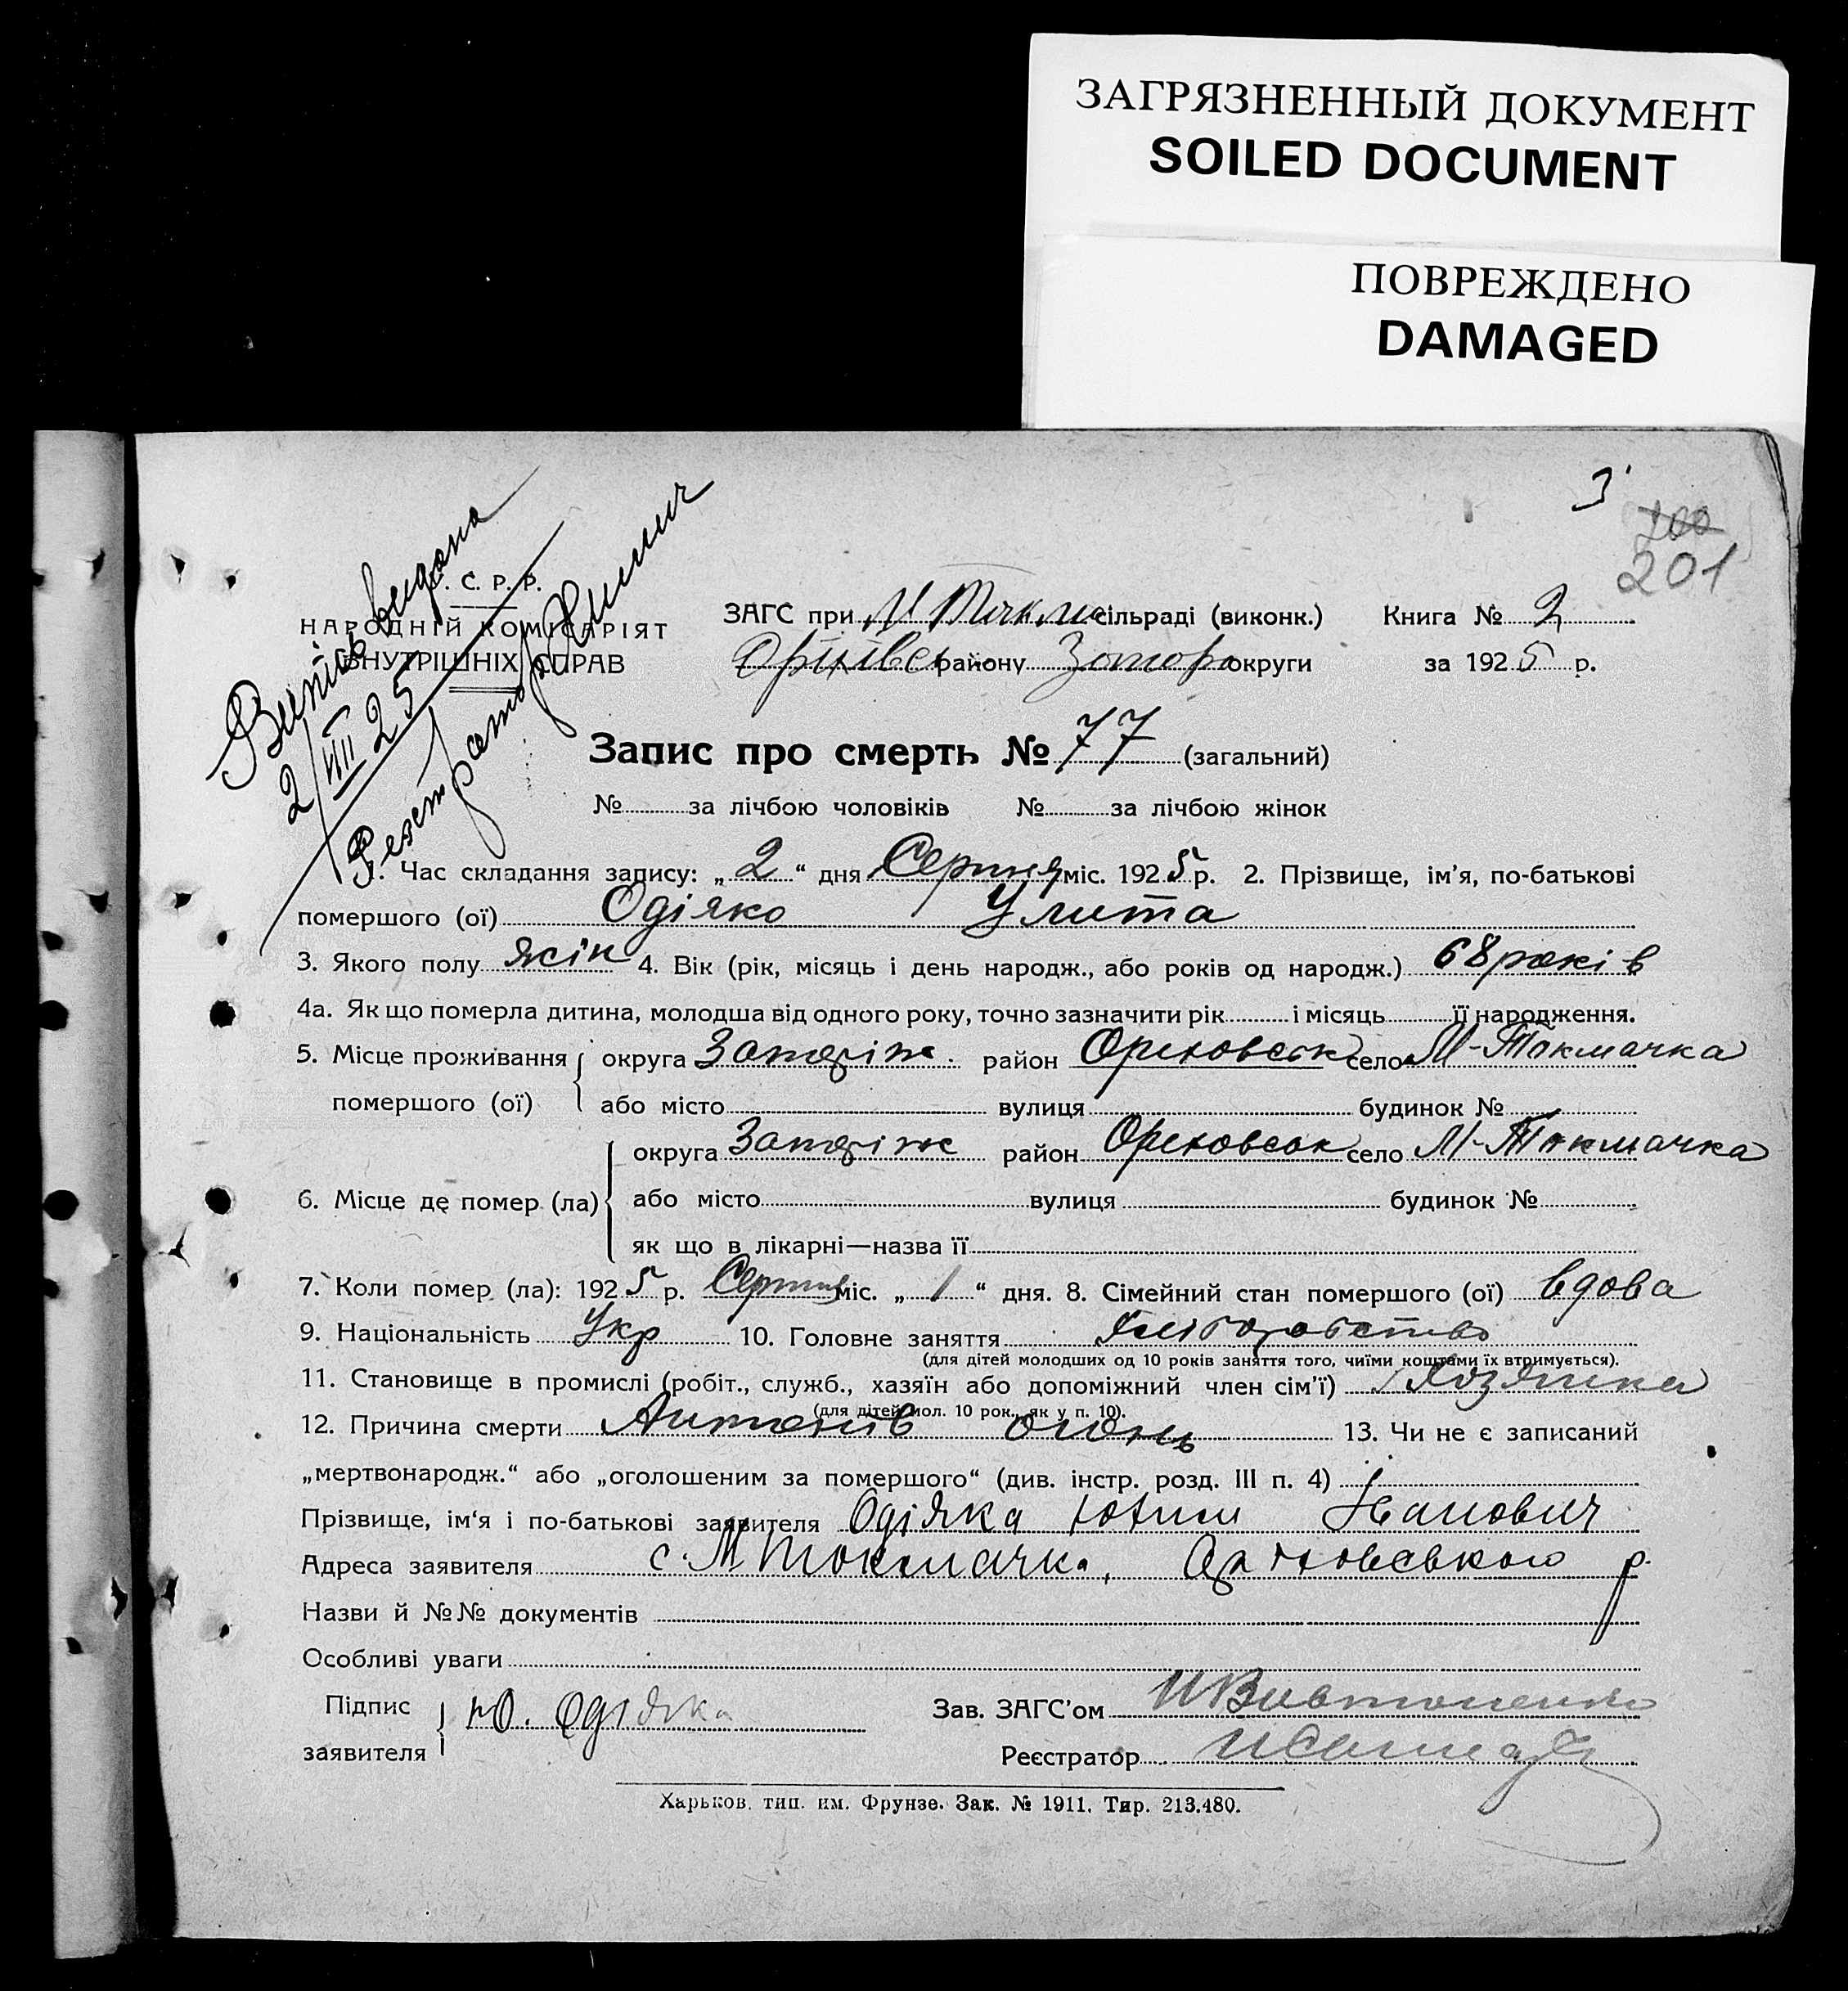 ЗАГРЯЗНЕННЫЙ ДОКУМЕНТ
SOILED DOCUMENT
ПОВРЕЖДЕНО
DAMAGED
З
200
201
Випись видана
2/VIII 25
С. Р. Р.
НАРОДНІЙ КОМІСАРІЯТ
ВНУТРІШНІХ СПРАВ
ЗАГС при М Токма сільраді (виконк.) Книга № 2
району Запор округи за 1925 р.
Запис про смерть № 77 (загальний)
№ за лічбою чоловіків № за лічбою жінок
1. Час складання запису: „2“ дня Серпня міс. 1925 р. 2. Прізвище, ім'я, по-батькові
помершого (ої) Одіяко Улита
3. Якого полу жін 4. Вік (рік, місяць і день народж., або років од народж.) 68 років
4а. Як що померла дитина, молодша від одного року, точно зазначити рік і місяць її народження.
5. Місце проживання округа Запоріж. район Ореховськ село М-Токмачка
помершого (ої) або місто вулиця будинок №
округа Запоріж район Ореховськ село М-Токмачка
6. Місце де помер (ла) або місто вулиця будинок №
як що в лікарні—назва її
7. Коли помер (ла): 1925 р. Серпня міс. „1“ дня. 8. Сімейний стан помершого (ої) вдова
9. Національність Укр 10. Головне заняття Хліборобство
(для дітей молодших од 10 років заняття того, чиїми коштами їх втримується).
11. Становище в промислі (робіт., служб., хазяїн або допоміжний член сім'ї) Хозяйка
(для дітей мол. 10 рок., як у п. 10).
12. Причина смерти Антонів огонь 13. Чи не є записаний
„мертвонародж.“ або „оголошеним за померш​ого“ (див. інстр. розд. III п. 4)
Прізвище, ім'я і по-батькові заявителя Одіяка Юхим Іванович
Адреса заявителя с. М Токмачка, Оріховського р.
Назви й №№ документів
Особливі уваги
Підпис
заявителя Ю. Одіяка
Зав. ЗАГС'ом
Реєстратор
Харьков, тип. им. Фрунзе. Зак. № 1911. Тир. 213.480.